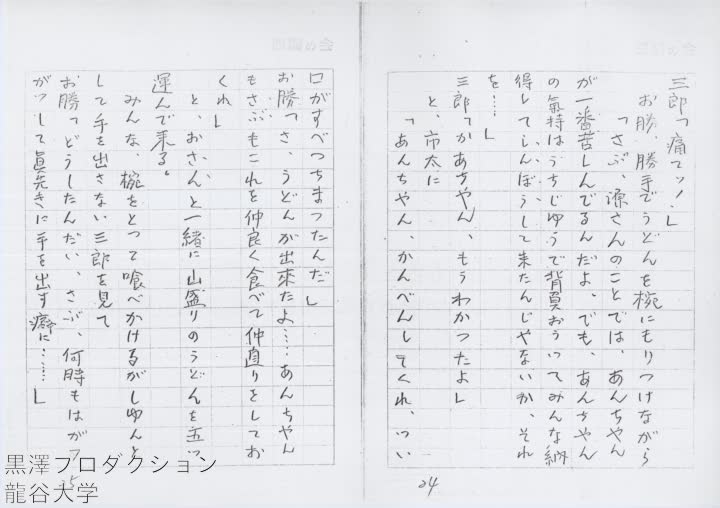 三郎「痛てッ!」
お勝、勝手でうどんを椀にもりつけながら
「さぶ、源さんのことでは、あんちゃん
が一番苦しんでるんだよ、でも、あんちゃん
の気持はうちじゅうで背負おうってみんな納
得してしんぼうして来たんじゃないか、それ
を……」
三郎「かあちゃん、もうわかつたよ」
と、市太に
「あんちゃん、かんべんしてくれ、つい
24
口がすべつちまつたんだ」
お勝「さ、うどんが出来たよ……あんちゃん
もさぶもこれを仲良く食べて仲直りをしてお
くれ」
と、おさんと一緒に山盛りのうどんを五つ
運んで来る。
みんな、椀をとつて喰べかけるがしゅんと
して手を出さない三郎を見て
お勝「どうしたんだい、さぶ、何時もはがつ
がつして真先きに手を出す癖に……」
25
黒澤プロダクション
龍谷大学